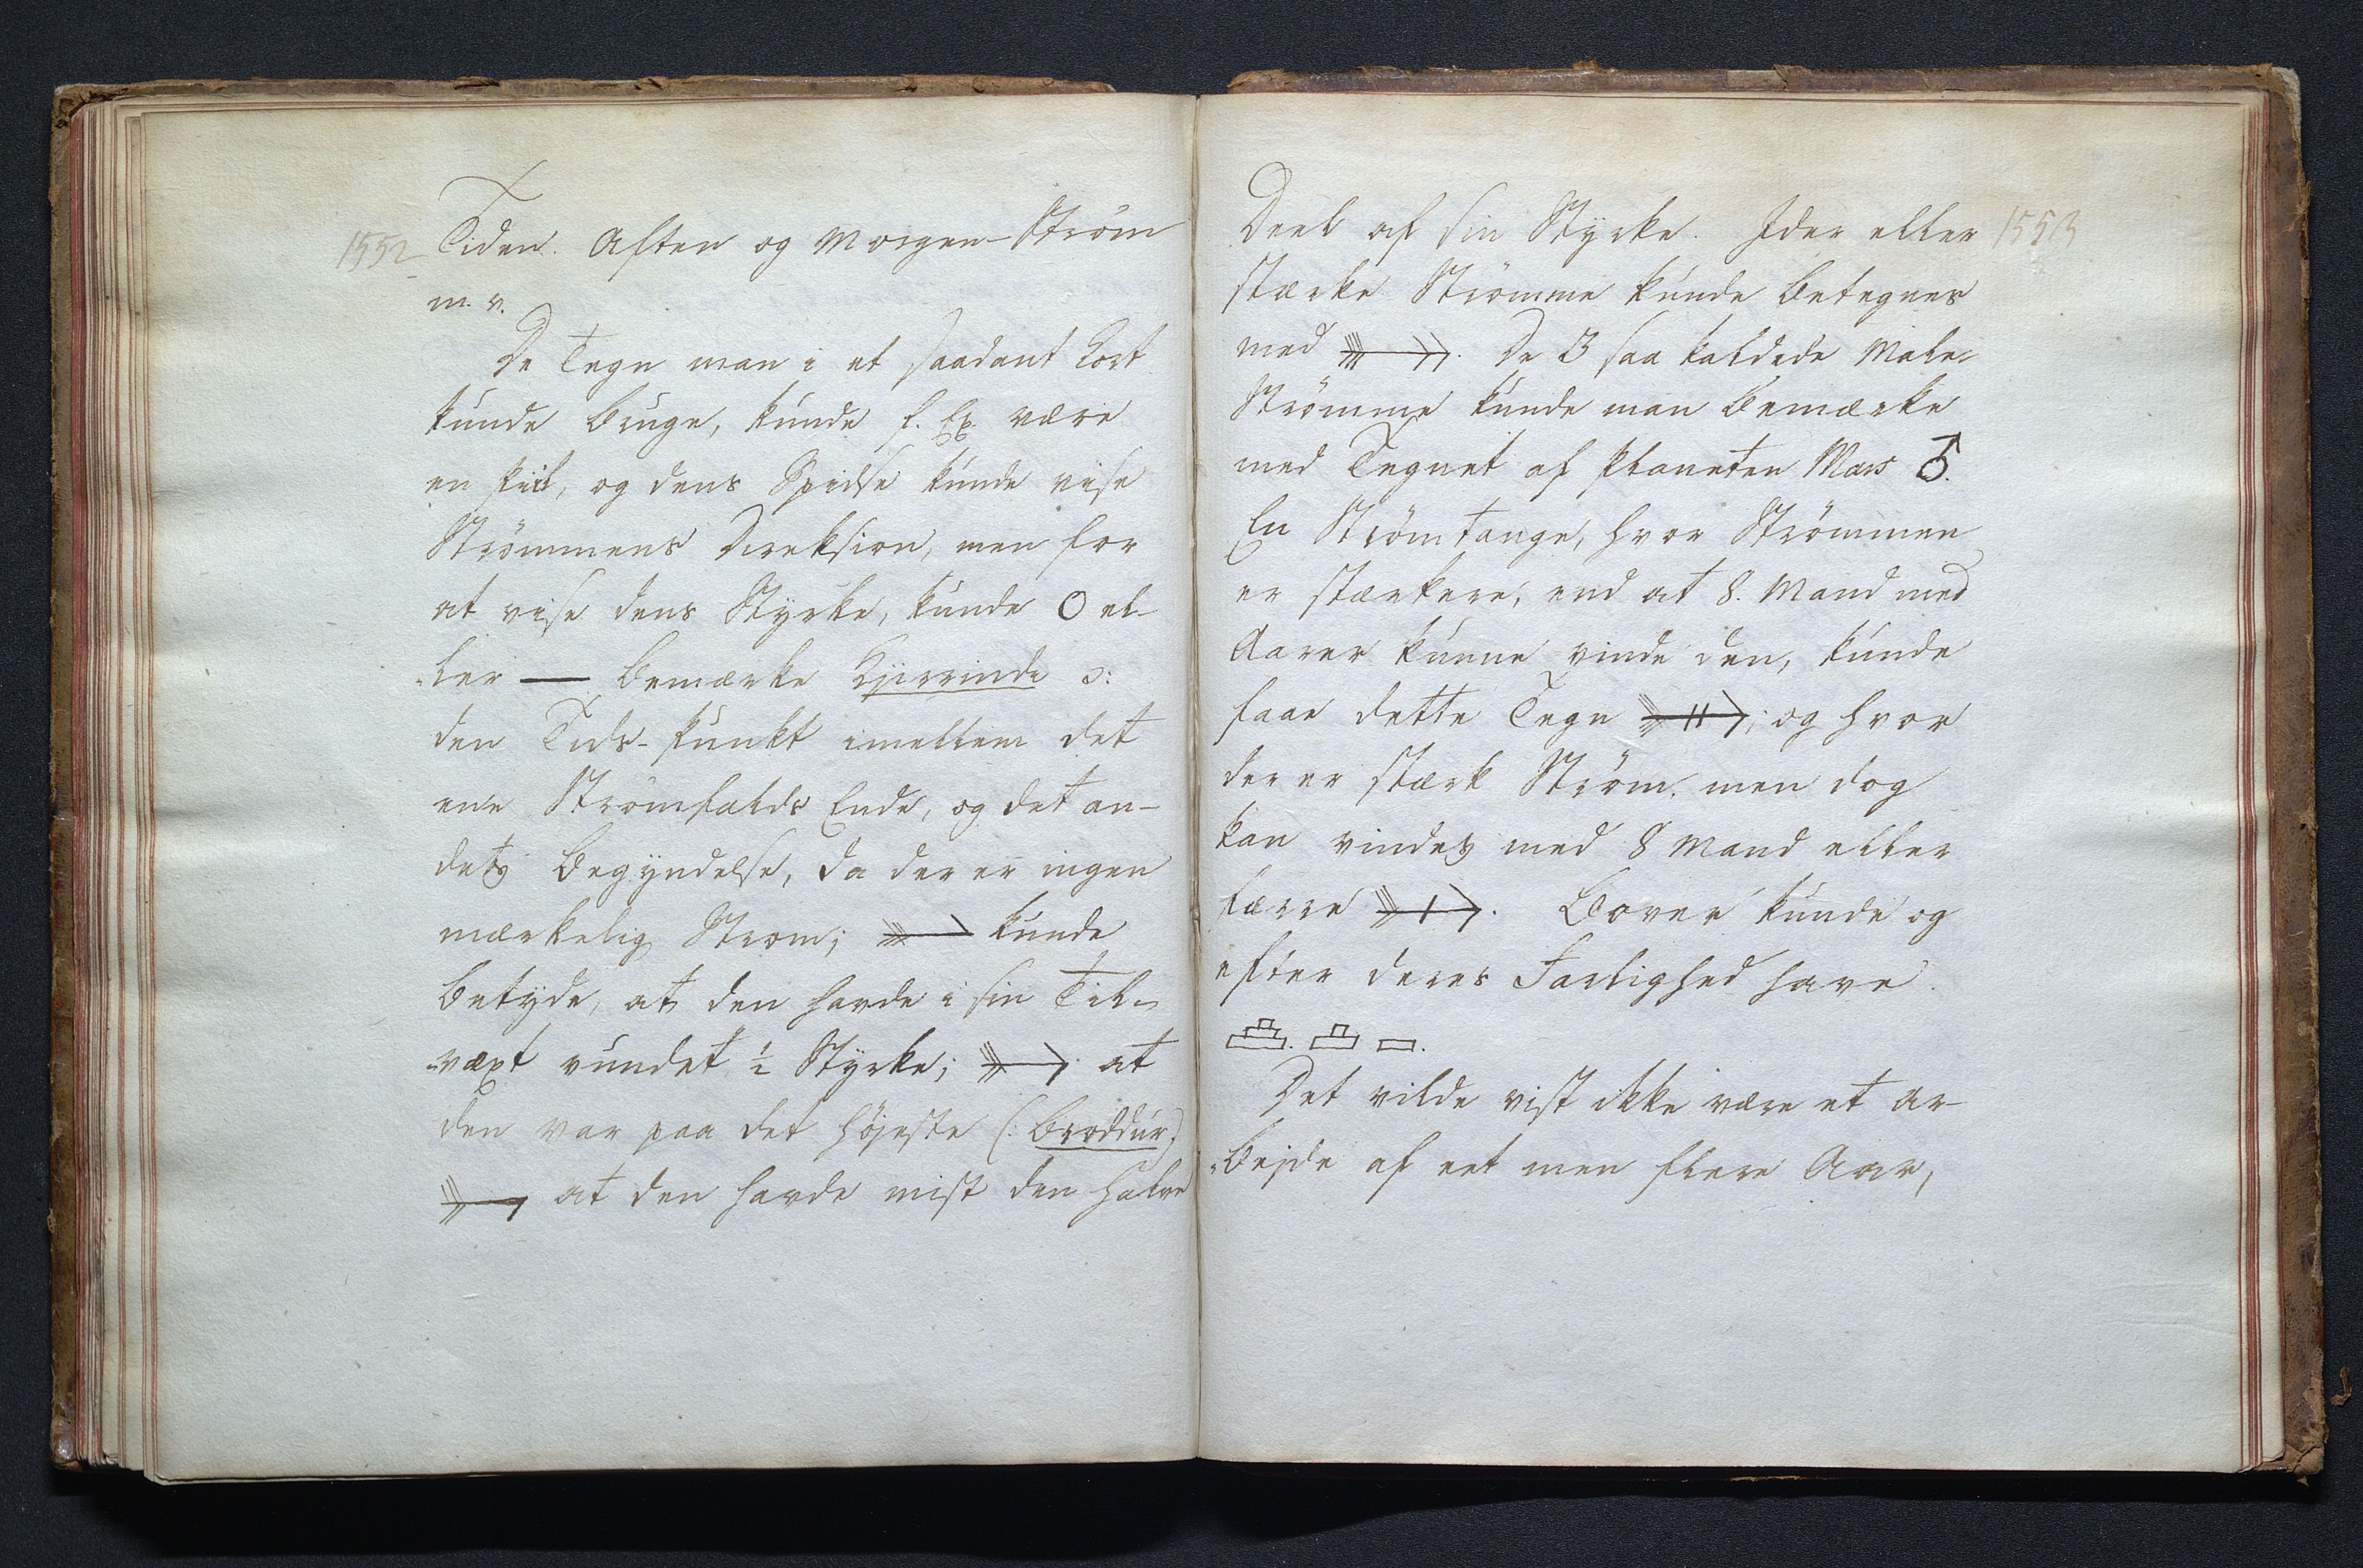 1552
Tiden. Aften og Morgen-Ström
m. v.
De Tegn man i et saadant Kort
kunde bruge, kunde f. Ex. være
en Piil, og dens Spidse kunde vise
Strömmens Direksion, men for
at vise dens Styrke, kunde O el-
ler — bemærke Kjirrinde ɔ:
den Tids-Punkt imellem det
ene Strömfalds Ende, og det an-
dets Begyndelse, da der er ingen
mærkelig Strøm; kunde
betyde, at den havde i sin Til-
væxt vundet ½ Styrke; at
den var paa det höjeste (: Broddur)
at den havde mist den halve
1553
Deel af sin Styrke. Ider eller
stærke Strömme kunde betegnes
med . De 3 saa kaldede Male-
Strömme kunde man bemærke
med Tegnet af Planeten Mars ♂.
En Strömtange, hvor Strömmen
er stærkere, end at 8. Mand med
Aarer kunne vinde den, kunde
faae dette Tegn ; og hvor
der er stærk Ström, men dog
kan vindes med 8 Mand eller
færre . Bover kunde og
efter deres Farlighed have
Det vilde vist ikke være et Ar-
bejde af eet men flere Aar,